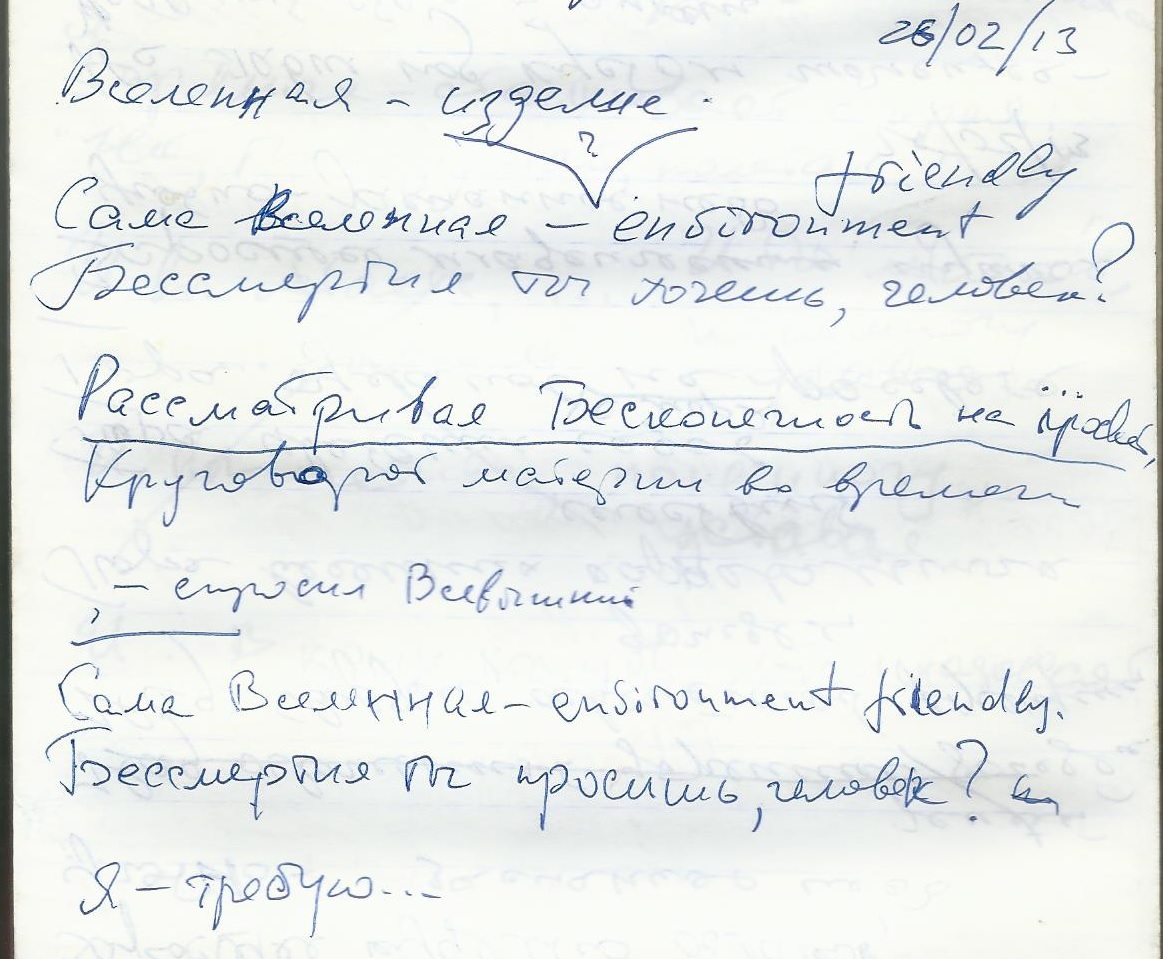 26/02/13
Вселенная - изделие.
?
friendly
Сама Вселенная - enbironment
Бессмертия ты хочешь, человек?
Рассматривая Бесконечность на просвет,
Круговорот материи во времени
, - спросил Всевышний
Сама Вселенная - enbironment friendly.
Бессмертия ты просишь, человек?
Я - требую...